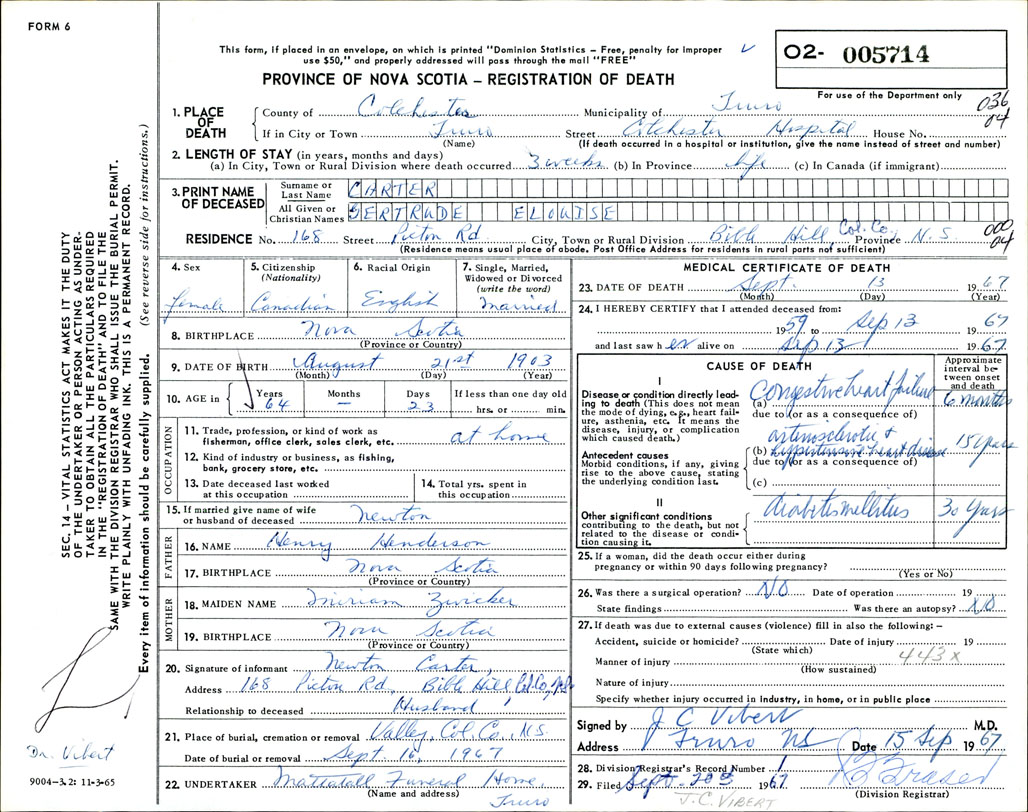 FORM 6
This form, if placed in an envelope, on which is printed "Dominion Statistics – Free, penalty for improper
use $50," and properly addressed will pass through the mail "FREE"
O2- 005714
PROVINCE OF NOVA SCOTIA – REGISTRATION OF DEATH
For use of the Department only
036
04
1. PLACE OF DEATH
County of Colchester Municipality of Truro
If in City or Town Truro Street Colchester Hospital House No.
(Name) (If death occurred in a hospital or institution, give the name instead of street and number)
2. LENGTH OF STAY (in years, months and days)
(a) In City, Town or Rural Division where death occurred 3 weeks (b) In Province life (c) In Canada (if immigrant)
3. PRINT NAME OF DECEASED
Surname or Last Name CARTER
All Given or Christian Names GERTRUDE ELOUISE
RESIDENCE No. 168 Street Picton Rd City, Town or Rural Division Bible Hill Col. Co. Province N.S.
000
04
(Residence means usual place of abode. Post Office Address for residents in rural parts not sufficient)
4. Sex
female
5. Citizenship
(Nationality)
Canadian
6. Racial Origin
English
7. Single, Married,
Widowed or Divorced
(write the word)
married
8. BIRTHPLACE Nova Scotia
(Province or Country)
9. DATE OF BIRTH August 21st 1903
(Month) (Day) (Year)
10. AGE in Years Months Days If less than one day old
64 – 23 hrs. or min.
OCCUPATION
11. Trade, profession, or kind of work as
fisherman, office clerk, sales clerk, etc. at home
12. Kind of industry or business, as fishing,
bank, grocery store, etc.
13. Date deceased last worked
at this occupation
14. Total yrs. spent in
this occupation
15. If married give name of wife
or husband of deceased Newton
FATHER
16. NAME Henry Henderson
17. BIRTHPLACE Nova Scotia
(Province or Country)
MOTHER
18. MAIDEN NAME Miriam Zwicker
19. BIRTHPLACE Nova Scotia
(Province or Country)
20. Signature of informant Newton Carter,
Address 168 Picton Rd. Bible Hill Col. Co, N.S.
Relationship to deceased Husband
21. Place of burial, cremation or removal Valley, Col. Co., N.S.
Date of burial or removal Sept. 16, 1967
22. UNDERTAKER Mattatall Funeral Home,
(Name and address) Truro
MEDICAL CERTIFICATE OF DEATH
23. DATE OF DEATH Sept. 13 1967
(Month) (Day) (Year)
24. I HEREBY CERTIFY that I attended deceased from:
1959 to Sep 13 1967
and last saw her alive on Sep 13 1967
CAUSE OF DEATH
Approximate
interval between onset
and death
I
Disease or condition directly leading to death (This does not mean
the mode of dying, e.g., heart failure, asthenia, etc. It means the
disease, injury, or complication
which caused death.)
(a) Congestive heart failure 6 months
due to (or as a consequence of)
Antecedent causes
Morbid conditions, if any, giving
rise to the above cause, stating
the underlying condition last.
arteriosclerotic &
(b) hypertensive heart disease 15 years
due to (or as a consequence of)
(c)
II
Other significant conditions
contributing to the death, but not
related to the disease or condition causing it.
diabetis mellitus 30 years
25. If a woman, did the death occur either during
pregnancy or within 90 days following pregnancy?
(Yes or No)
26. Was there a surgical operation? NO Date of operation 19
State findings Was there an autopsy? NO
27. If death was due to external causes (violence) fill in also the following: –
Accident, suicide or homicide? Date of injury 19
(State which)
443X
Manner of injury
(How sustained)
Nature of injury
Specify whether injury occurred in industry, in home, or in public place
Signed by J C Vibert M.D.
Address Truro NS Date 15 Sep 1967
28. Division Registrar's Record Number 1
29. Filed Sept 20th 1967
(Division Registrar)
J.C. VIBERT
SEC. 14 – VITAL STATISTICS ACT MAKES IT THE DUTY
OF THE UNDERTAKER OR PERSON ACTING AS UNDERTAKER TO OBTAIN ALL THE PARTICULARS REQUIRED
IN THE "REGISTRATION OF DEATH" AND TO FILE THE
SAME WITH THE DIVISION REGISTRAR WHO SHALL ISSUE THE BURIAL PERMIT.
WRITE PLAINLY WITH UNFADING INK. THIS IS A PERMANENT RECORD.
Every item of information should be carefully supplied. (See reverse side for instructions.)
Dr. Vibert
9004-3.2: 11-3-65